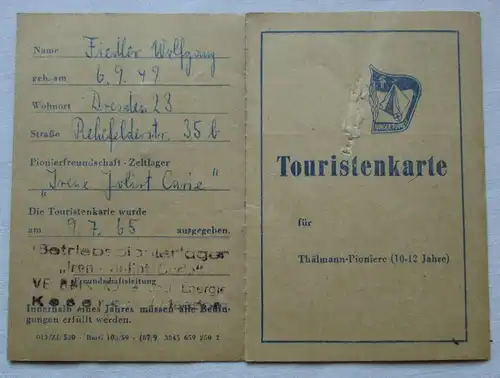 Name Fiedler Wolfgang
geb. am 6. 9. 49
Wohnort Dresden 23
Straße Rehefelderstr. 35 b
Pionierfreundschaft - Zeltlager
"Irene Joliot Curie"
Die Touristenkarte wurde
am 9. 7. 65 ausgegeben.
Betriebspionierlager
Freundschaftsleitung
Innerhalb eines Jahres müssen alle Bedin-
gungen erfüllt werden.
JUNGER TOURIST
Touristenkarte
für
Thälmann-Pioniere (10-12 Jahre)